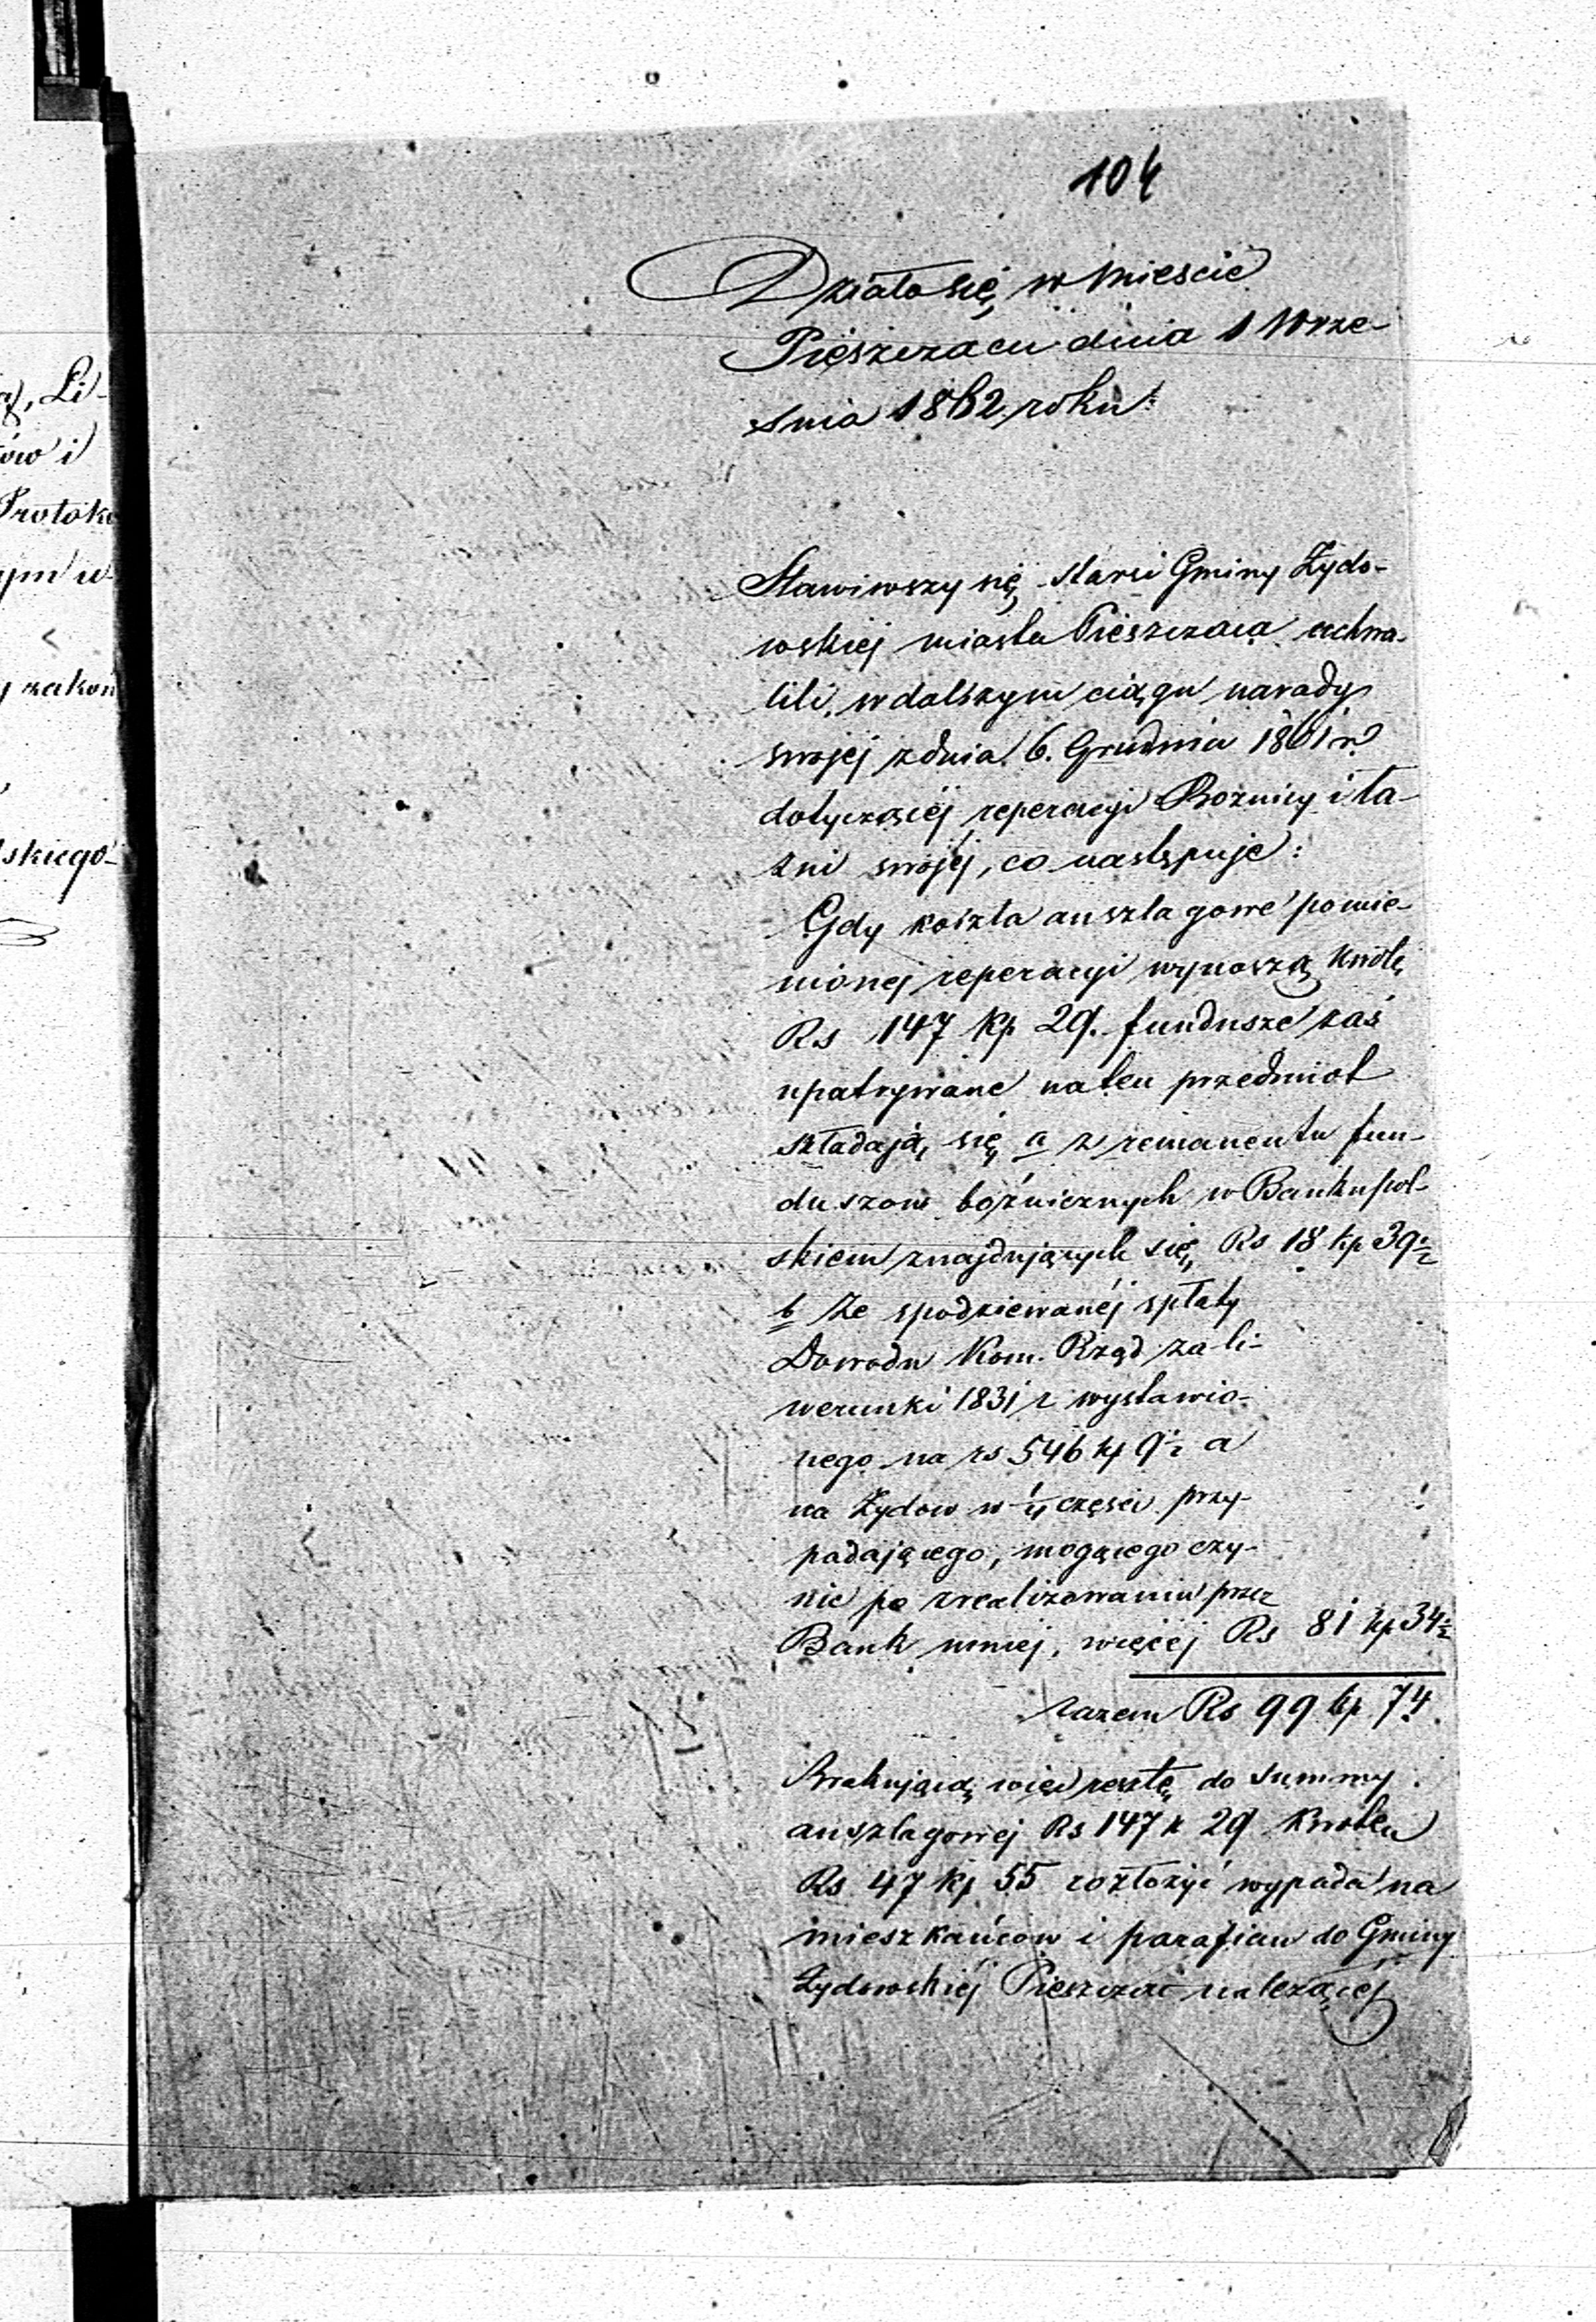 104
Działo się w Mieście
Pieszczacu dnia 1 Wrze-
śnia 1862 roku.
Stawiwszy się Starsi Gminy Żydo-
wskiej miasta Pieszczaca uchwa-
lili, w dalszym ciągu narady
swojej z dnia 6. Grudnia 1861 r.
dotyczącéj reperacyi Bożnicy i ła-
źni swojéj, co następuje:
Gdy koszta anszlagowe pomie-
nionej reperacyi wynoszą kwotę
Rs 147 kp 29. fundusze zaś
upatrywane na ten przedmiot
składają się a z remanentu fun-
duszów bóźnicznych w Banku pol-
skiem znajdujących się Rs 18 kp 39½
b Ze spodziewanéj spłaty
Dowodu Kom. Rząd za li-
werunki 1831 r wystawio-
nego na rs 546 kp 9½ a
na Żydów w części przy-
padającego, mogącego czy-
nić po zrealizowaniu przez
Bank mniej, więcéj Rs 81 kp 34½
razem Rs 99 kp 74.
Brakującą więc resztę do summy
anszlagowej Rs 147 k 29 kwotę
Rs 47 kp 55 rozłożyć wypada na
mieszkańców i parafian do Gminy
Żydowskiéj Pieszczac należącej
Li-
ów i
Protoko
ym u-
zakon
skiego